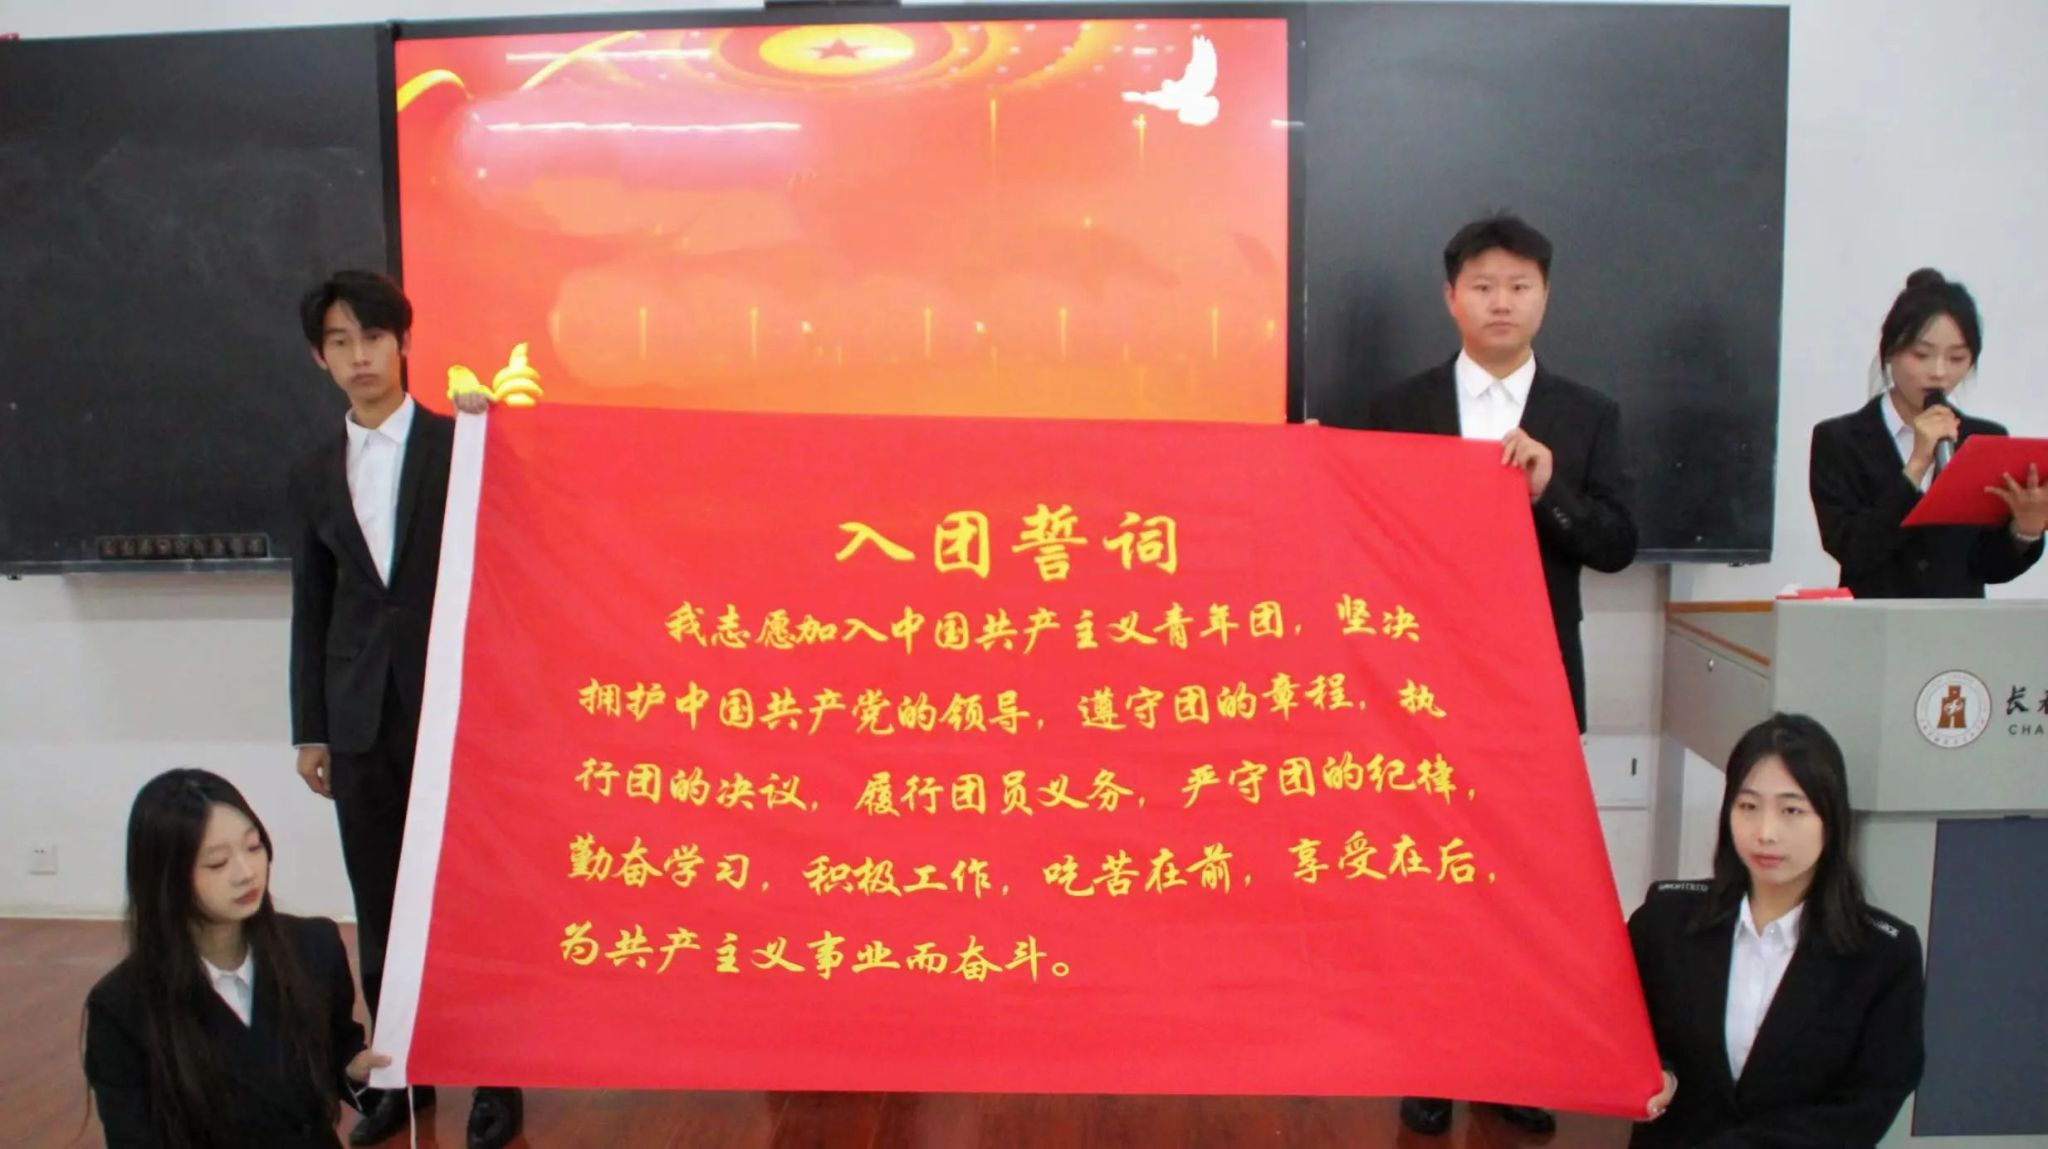 入团誓词
我志愿加入中国共产主义青年团，坚决
拥护中国共产党的领导，遵守团的章程，执
行团的决议，履行团员义务，严守团的纪律，
勤奋学习，积极工作，吃苦在前，享受在后，
为共产主义事业而奋斗。
长
CHA